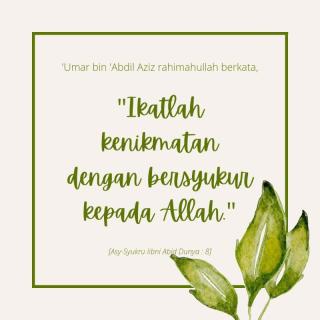 'Umar bin 'Abdil Aziz rahimahullah berkata,
"Ikatlah
kenikmatan
dengan bersyukur
kepada Allah."
[Asy-Syukru libni Abid Dunya : 8]